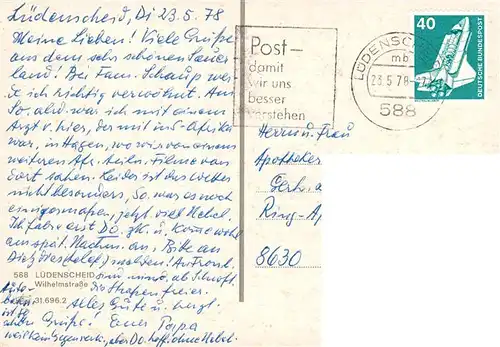 Lüdenscheid, Di 23.5.78
Meine Lieben! Viele Grüße
aus dem sehr schönen Sauer
land. Bei Fam. Schaup wer
de ich richtig verwöhnt. Am
So. abd. war ich mit einem
Arzt v. hier, der mit in Afrika
war, in Hagen, wo wir von einem
weiteren Afr. Teiln. Filme von
dort sahen. Leider ist das Wetter
nicht besonders, So. war es noch
einigermaßen, jetzt viel Nebel.
Ich fahre erst Do. zk. u. komme wohl
am spät. Nachm. an. Bitte an
melden!
588 LÜDENSCHEID
Wilhelmstraße
31.696.2
Alles Gute u. herzl.
Grüße! Euer
aber Do. hoff. ohne Nebel.
Post-
damit
wir uns
besser
verstehen
LÜDENSCHEID
mb
23.5.78
588
40
DEUTSCHE BUNDESPOST
Herrn u. Frau
Apotheker
Gerh.
Ring-Ap
8630